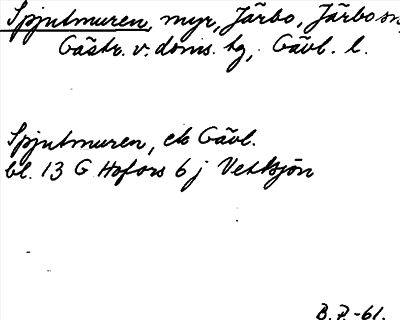 Spjutmuren, myr, Järbo, Järbo sn,
Gästr. v. doms. tg, Gävl. l.
Spjutmuren, ek Gävl.
bl. 13 G Hofors 6 j Vetlsjön
B. P. -61.